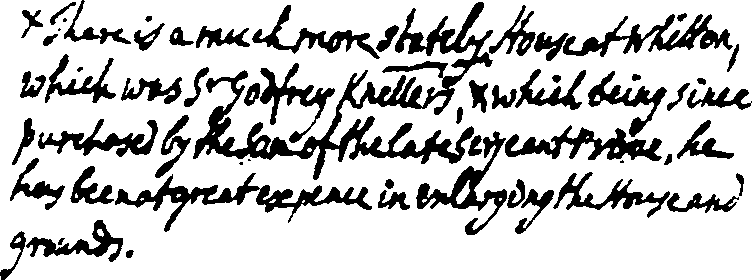 × There is a much more stately House at Whitton,
which was Sr Godfrey Kneller's, & which being since
purchased by the Son of the late Serjeant Prime, he
has been at great expence in enlarging the House and
grounds.